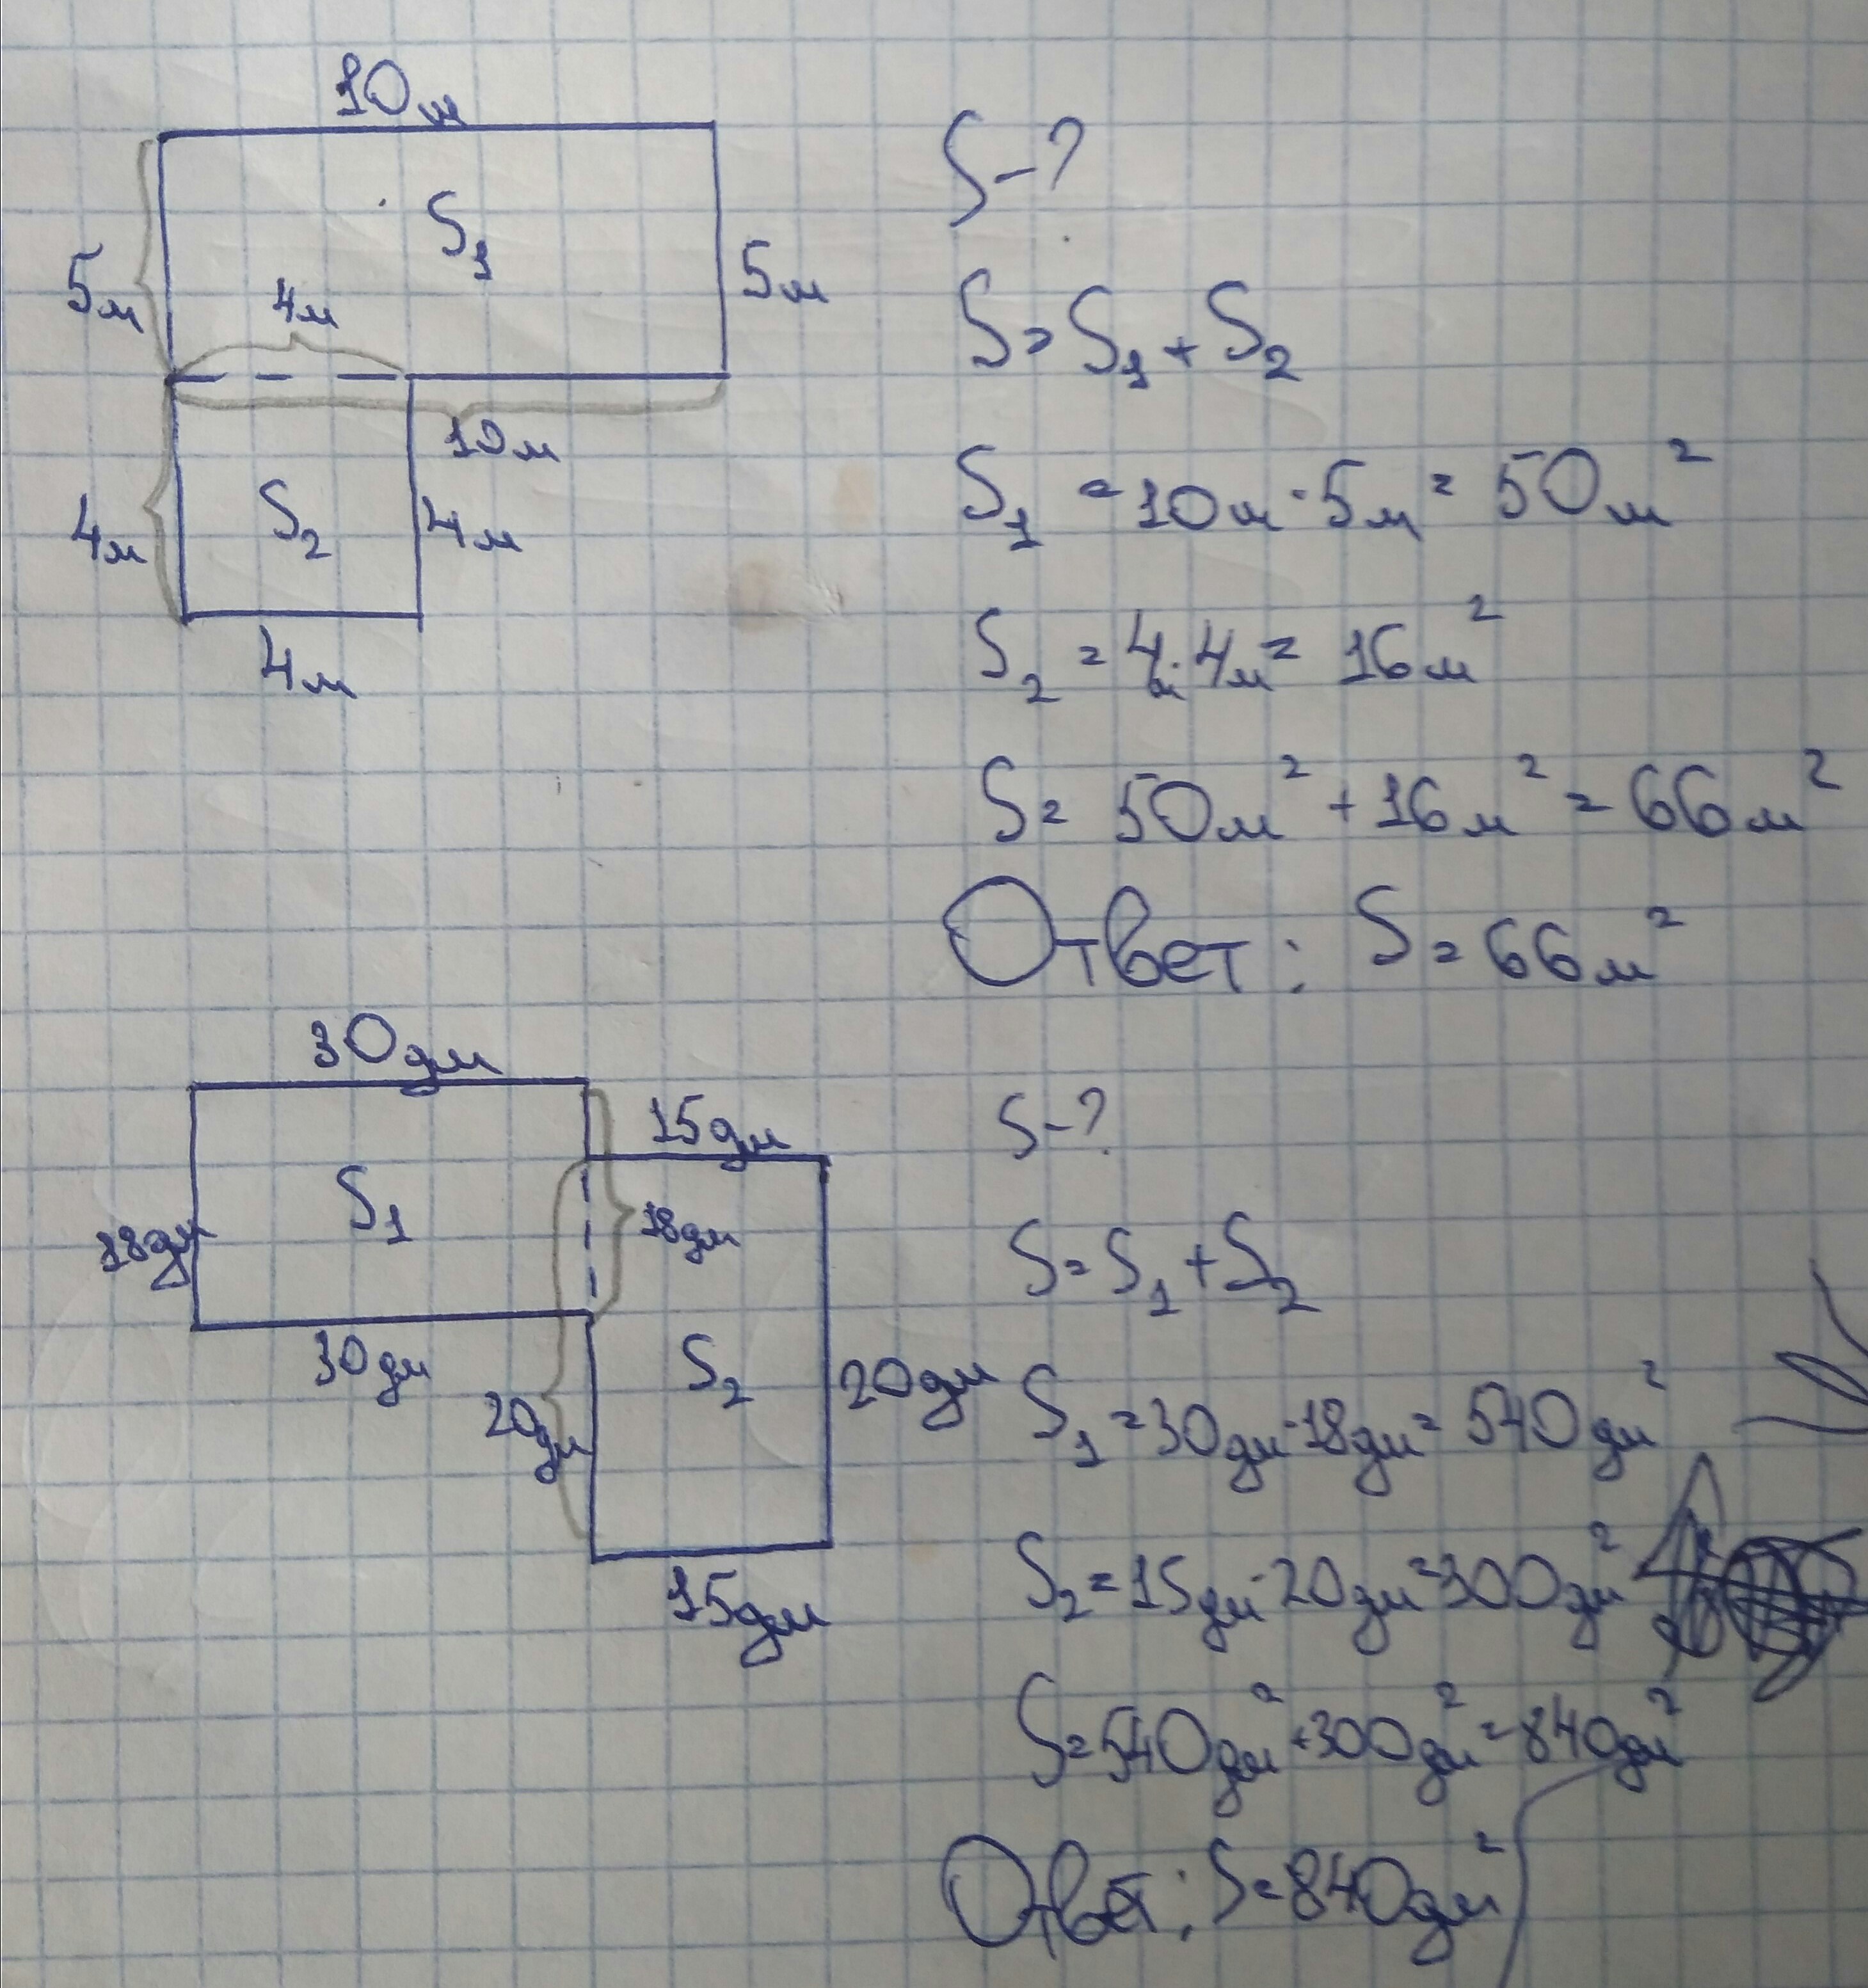 10м
S₁
5м
5м
4м
10м
S₂
4м
4м
4м
S-?
S = S₁ + S₂
S₁ = 10м · 5м = 50м²
S₂ = 4м · 4м = 16м²
S = 50м² + 16м² = 66м²
Ответ: S = 66м²
30дм
15дм
S₁
18дм
18дм
30дм
S₂
20дм
20дм
15дм
S-?
S = S₁ + S₂
S₁ = 30дм · 18дм = 540дм²
S₂ = 15дм · 20дм = 300дм²
S = 540дм² + 300дм² = 840дм²
Ответ: S = 840дм²